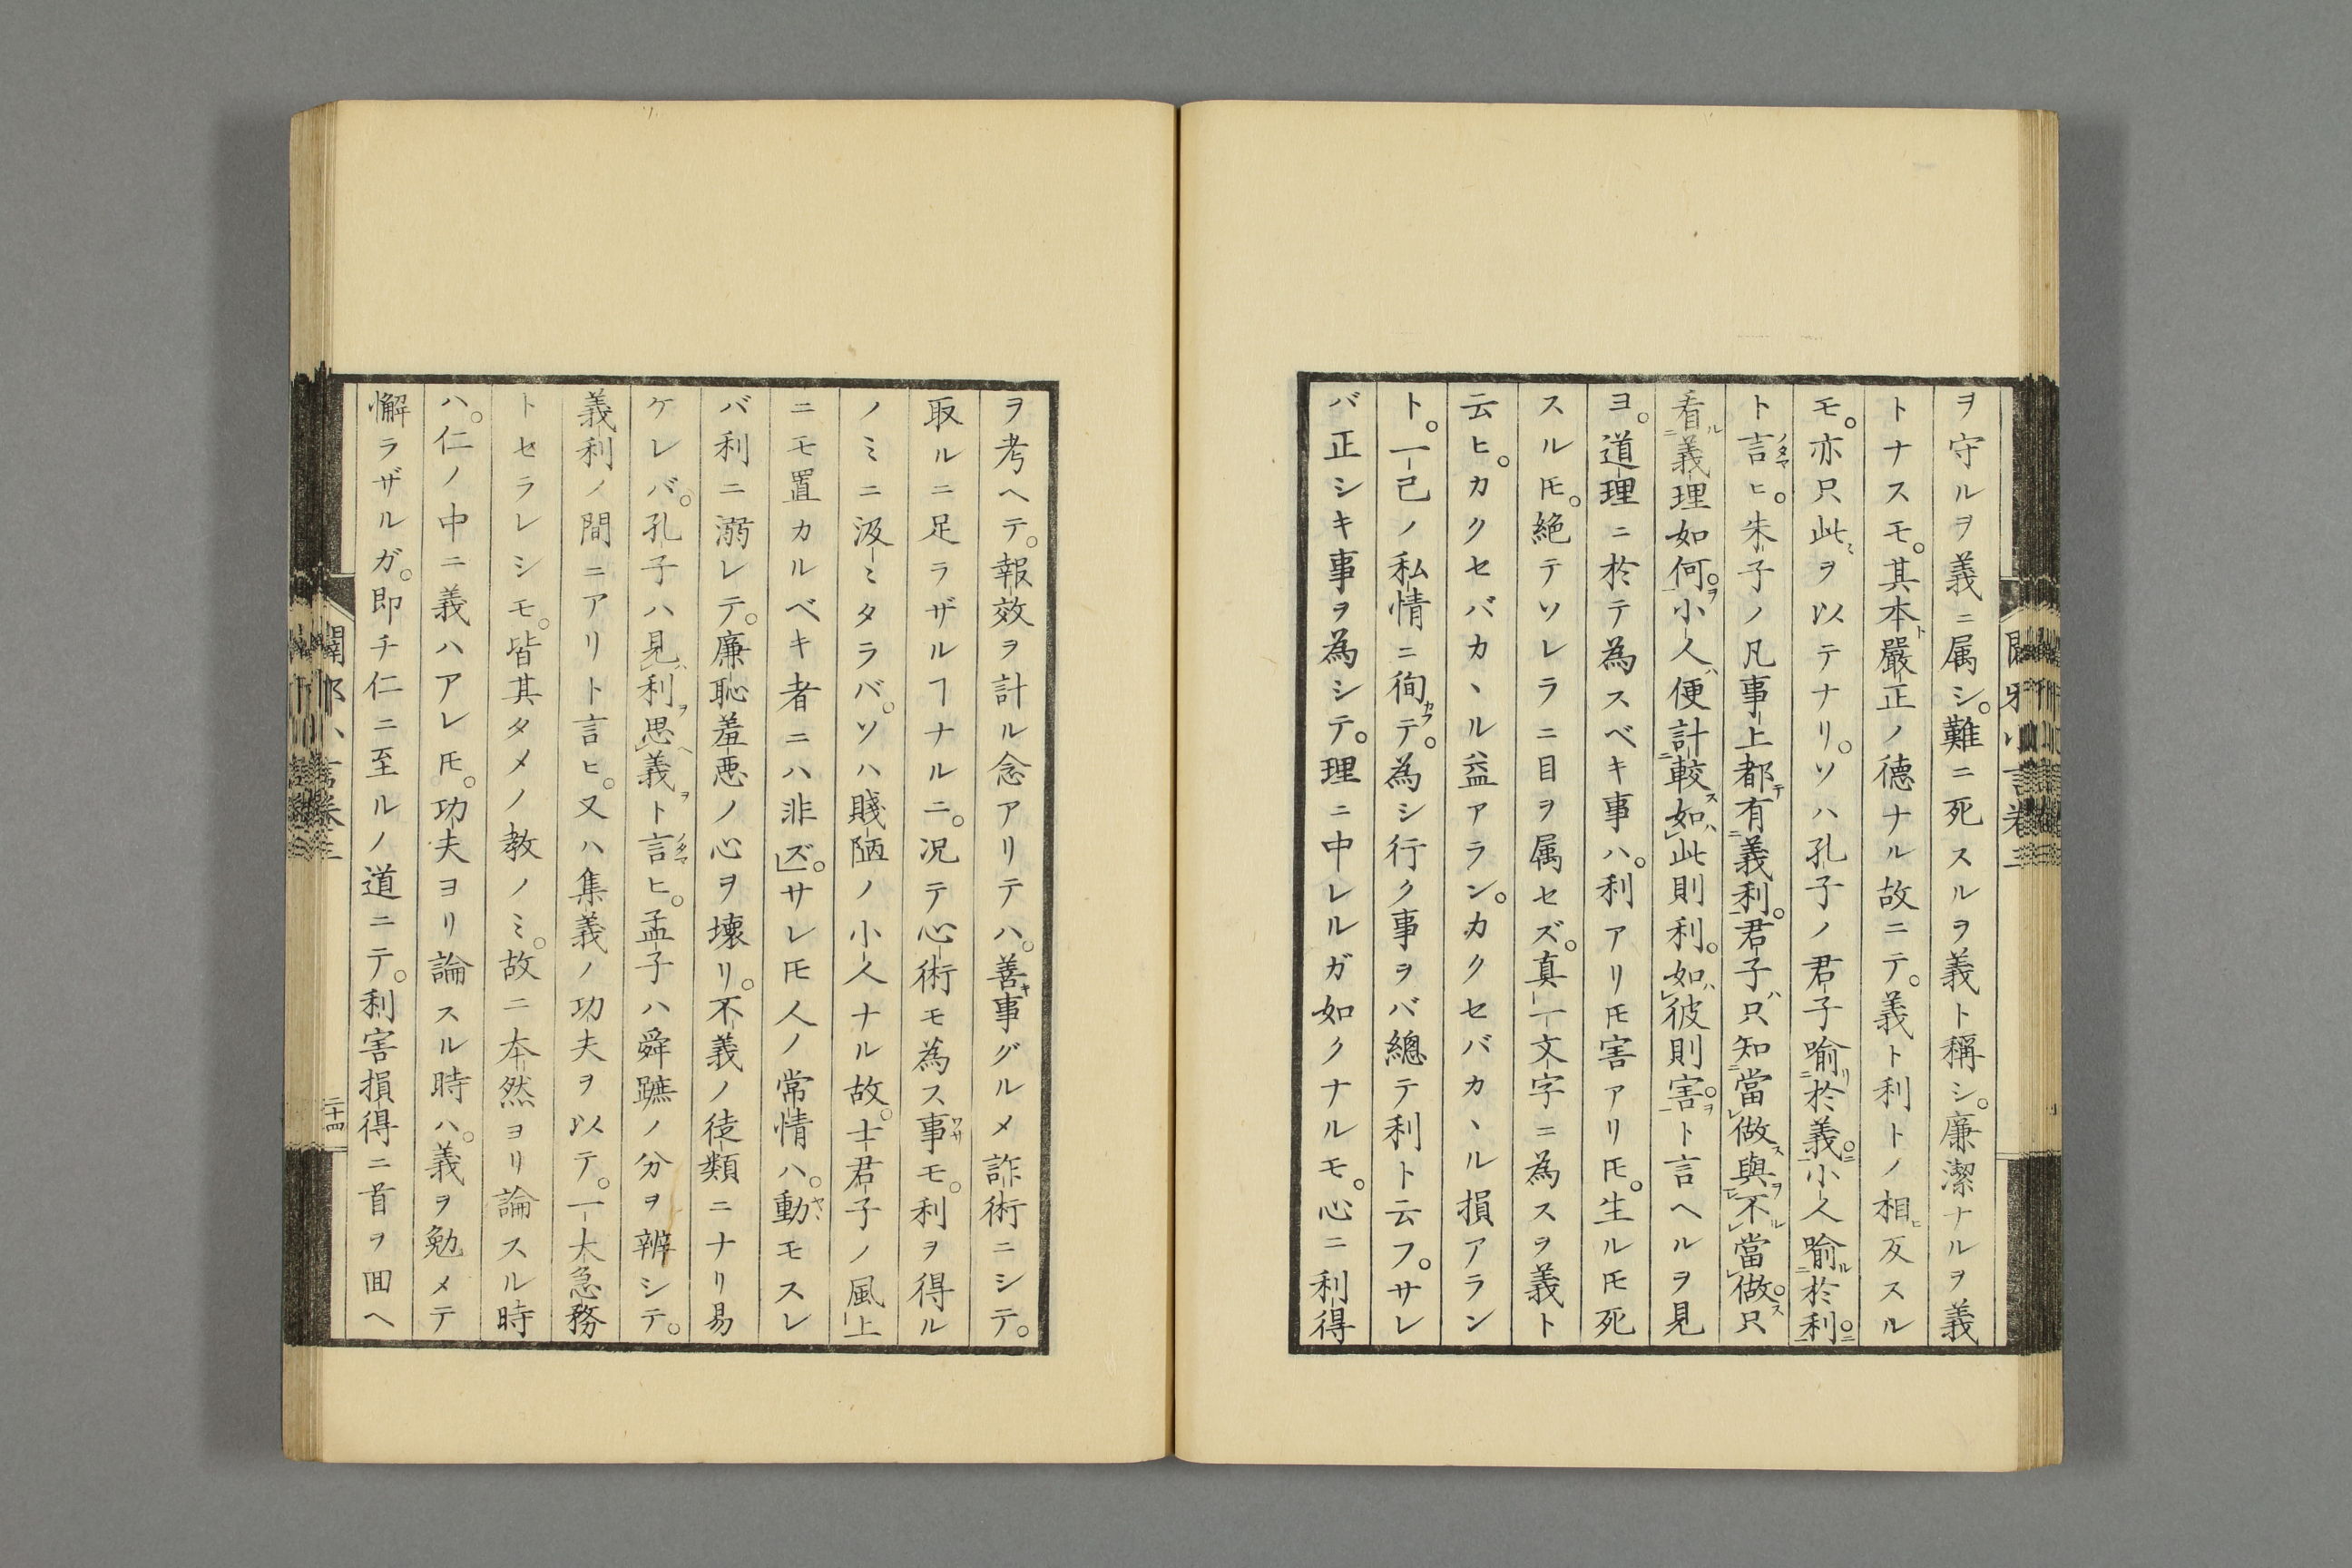 ヲ守ルヲ義ニ属シ。難ニ死スルヲ義ト稱シ。廉潔ナルヲ義
トナスモ。其本ト嚴正ノ徳ナル故ニテ。義ト利トノ相ヒ反スル
モ。亦只此ミヲ以テナリ。ソハ孔子ノ君子喩リ二於義一ニ。小人喩ル二於利一ニ。
ト言ノタマヒ。朱子ノ凡事上都テ有二義利一。君子ハ只知二當レ做スト與ヲ不ルレ當レ做ス。只
看ル二義理如何一ヲ。小人ハ便計二較ス如ハレ此則利。如ハレ彼則害一ヲ。ト言ヘルヲ見
ヨ。道理ニ於テ為スベキ事ハ。利アリ𪜈害アリ𪜈。生ル𪜈死
スル𪜈。絶テソレラニ目ヲ属セズ。真一文字ニ為スヲ義ト
云ヒ。カクセバカヽル益アラン。カクセバカヽル損アラン
ト。一己ノ私情ニ徇カフテ。為シ行ク事ヲバ總テ利ト云フ。サレ
バ正シキ事ヲ為シテ。理ニ中レルガ如クナルモ。心ニ利得
闢邪小言卷三
ヲ考ヘテ。報效ヲ計ル念アリテハ。善キ事グルメ詐術ニシテ。
取ルニ足ラザルヿナルニ。况テ心術モ為ス事ワザモ。利ヲ得ル
ノミニ汲ミタラバ。ソハ賤陋ノ小人ナル故。士君子ノ風上
ニモ置カルベキ者ニハ非ズ。サレ𪜈人ノ常情ハ。動ヤヽモスレ
バ利ニ溺レテ。廉恥羞悪ノ心ヲ壊リ。不義ノ徒類ニナリ易
ケレバ。孔子ハ見バレ利ヲ思ヘレ義ヲト言ノタマヒ。孟子ハ舜蹠ノ分ヲ辨シテ。
義利ノ間ニアリト言ヒ。又ハ集義ノ功夫ヲ以テ。一大急務
トセラレシモ。皆其タメノ教ノミ。故ニ本然ヨリ論スル時
ハ。仁ノ中ニ義ハアレ𪜈。功夫ヨリ論スル時ハ。義ヲ勉メテ
懈ラザルガ。即チ仁ニ至ルノ道ニテ。利害損得ニ首ヲ回ヘ
闢邪小言卷三
二十四